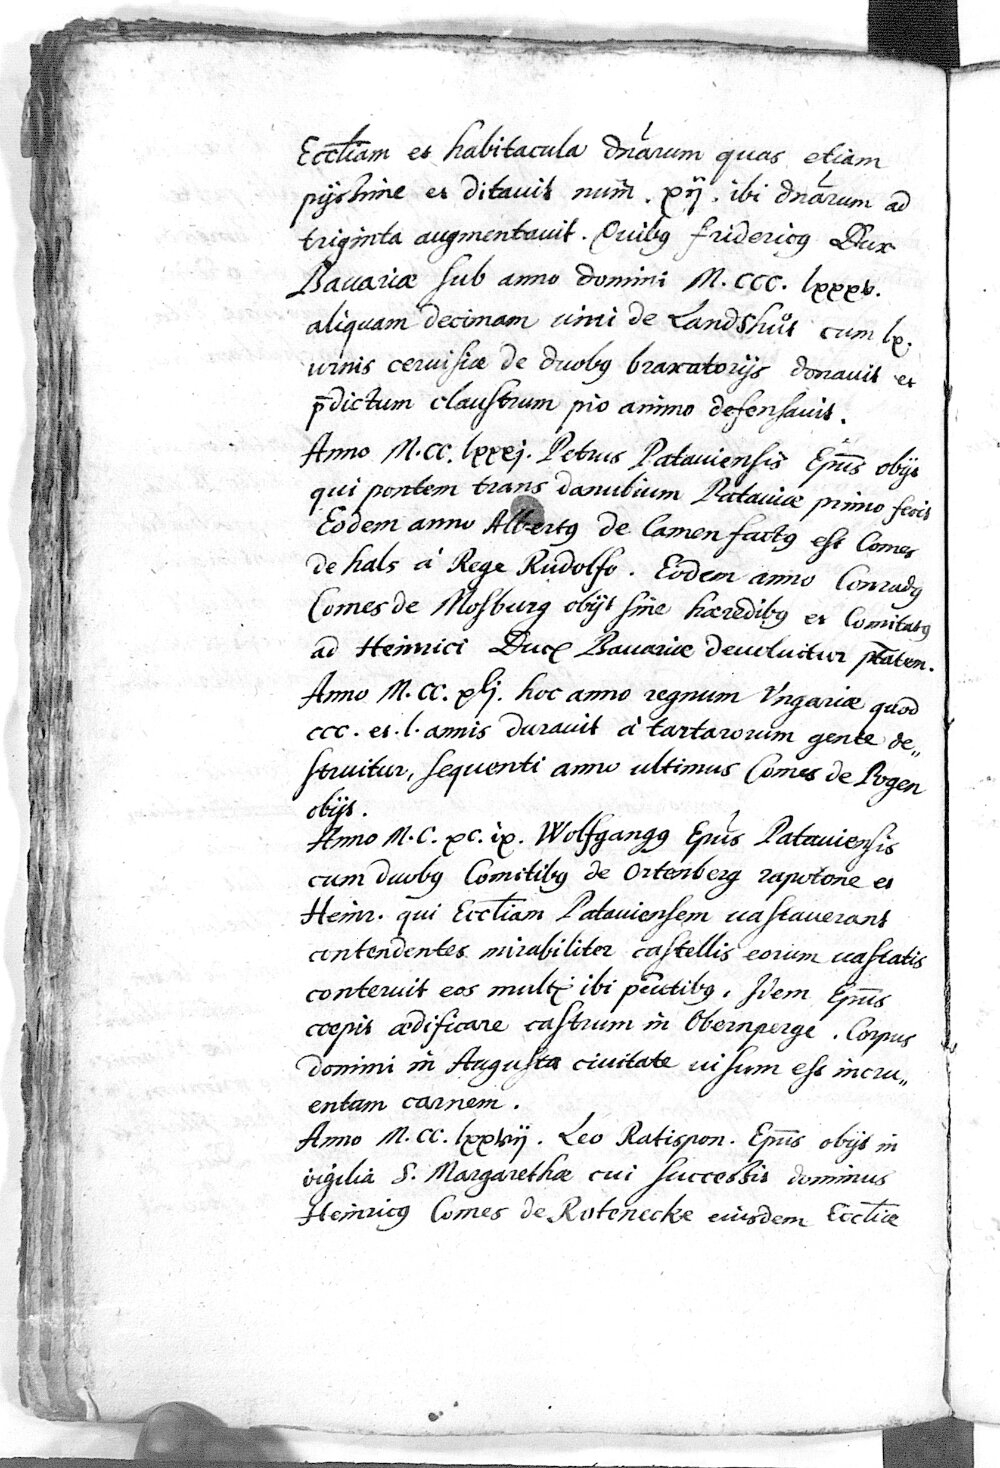 Eccl̄iam et habitacula dn̄arum quas etiam
pijssime et ditavit num̄. xij. ibi dn̄arum ad
triginta augmentavit. Quibꝰ fridericꝰ Dux
Bavariæ sub anno domini M. CCC. lxxxv.
aliquam decimam vini de Landshůt cum lx.
urnis cervisiæ de duobꝰ braxatorijs donavit et
p̄dictum claustrum pio animo defensavit.
Anno M. CC. lxxxj. Petrus Pataviensis Ep̄us obijt
qui pontem trans danubium Pataviæ primo fecit
Eodem anno Albertꝰ de Camen factꝰ est Comes
de hals á Rege Rudolfo. Eodem anno Conradꝰ
Comes de Mosburg obijt sine hæredibꝰ et Comitatꝰ
ad Heinrici Ducꝭ Bavariæ devolvitur p̄tatem.
Anno M. CC. xlj. hoc anno regnum Vngariæ quod
CCC. et. l. annis duravit á tartarorum gente de„
struitur, sequenti anno ultimus Comes de Pogen
obijt.
Anno M. C. xc. ix. Wolfgangꝰ Ep̄us Pataviensis
cum duobꝰ Comitibꝰ de Ortenberg rapotone et
Heinr. qui Eccl̄iam Pataviensem vastaverant
contendentes mirabiliter castellis eorum vastatis
conteruit eos multꝭ ibi pe̅utibꝰ. Idem Ep̄us
cœpit ædificare castrum in Obernperge. Corpus
domini in Augusta civitate visum est incru„
entam carnem.
Anno M. CC. lxxvij. Leo Ratispon. Ep̄us obijt in
vigilia S. Margarethæ cui successit dominus
Heinricꝰ Comes de Rotenecke eiusdem Eccl̄iæ